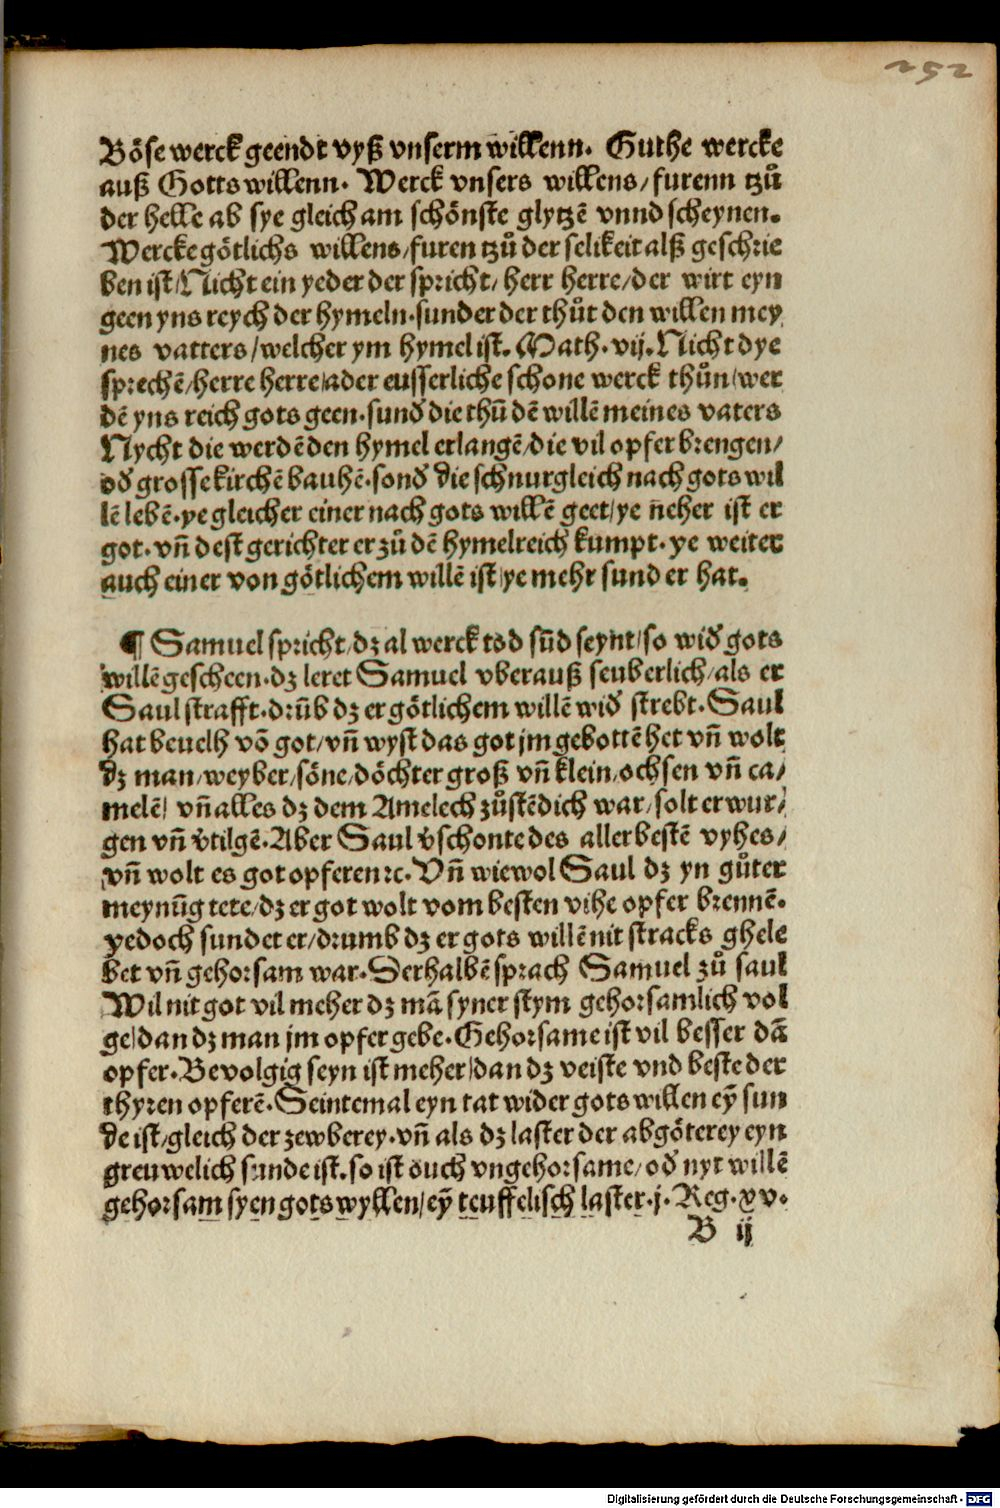 252
Böse werck geendt vyß vnserm willenn. Guthe wercke
auß Gotts willenn. Werck vnsers willens/furenn tzů
der helle ab sye gleich am schönste glytzē vnnd scheynen.
Wercke götlichs willens/furen tzů der selikeit alß geschrie
ben ist/Nicht ein yeder der spricht/ herr herre/der wirt eyn
geen yns reych der hymeln.sunder der thůt den willen mey
nes vatters/welcher ym hymel ist. Math. vij. Nicht dye
sprechē/herre herre/ader eusserliche schone werck thůn/wer
dē yns reich gots geen.sunđ die thū dē willē meines vaters
Nycht die werdē den hymel erlangē/die vil opfer brengen/
ođ grosse kirchē bauhē.sonđ die schnurgleich nach gots wil
lē lebē.ye gleicher einer nach gots willē geet/ye neher ist er
got.vñ dest gerichter er zů dē hymelreich kumpt.ye weiter
auch einer von götlichem willē ist/ye mehr sund er hat.
¶ Samuel spricht/dz al werck tod sūd seynt/so wiđ gots
willē gescheen.dz leret Samuel vberauß seuberlich/als er
Saul strafft.drūb dz er götlichem willē wiđ strebt.Saul
hat beuelh vō got/vñ wyst das got jm gebottē het vñ wolt
dz man/weyber/söne/döchter groß vñ klein/ochsen vñ ca/
melē/ vñ alles dz dem Amelech zůstēdich war/solt er wur/
gen vñ v̄tilgē.Aber Saul v̄schonte des aller bestē vyhes/
vñ wolt es got opferen ꝛc.Vñ wiewol Saul dz yn gůter
meynūg tete/dz er got wolt vom besten vihe opfer brennē.
yedoch sundet er/drumb dz er gots willē nit stracks ghele
bet vñ gehorsam war.Derhalbē sprach Samuel zů saul
Wil nit got vil meher dz mā syner stym gehorsamlich vol
ge/dan dz man jm opfer gebe.Gehorsame ist vil besser dā
opfer.Bevolgig seyn ist meher/dan dz veiste vnd beste der
thyren opferē.Seintemal eyn tat wider gots willen eȳ sun
de ist/gleich der zewberey.vñ als dz laster der abgöterey eyn
greuwelich sunde ist.so ist ouch vngehorsame/ođ nyt willē
gehorsam syen gots wyllen/eȳ teuffelisch laster.j.Reg.xv.
B ij
Digitalisierung gefördert durch die Deutsche Forschungsgemeinschaft - DFG